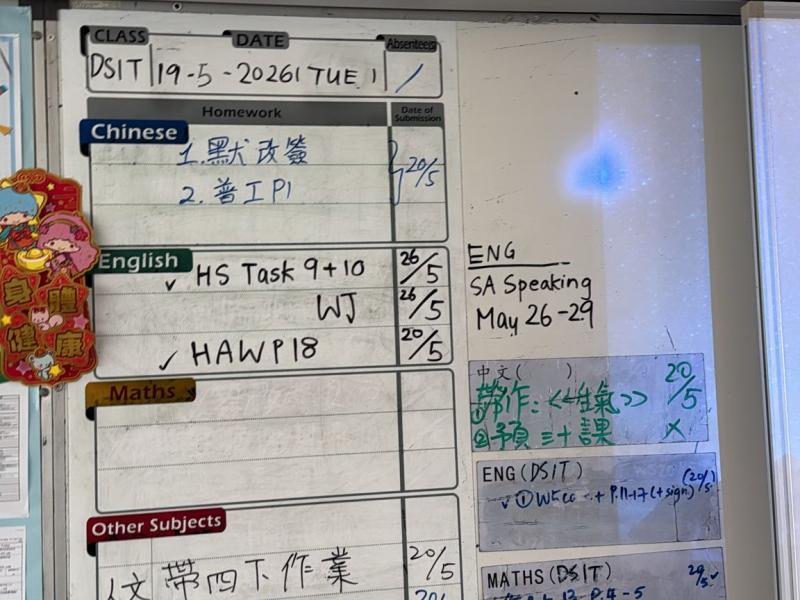 CLASS DATE Absentees
DSIT 19-5-2026 TUE /
Homework Date of Submission
Chinese
1.默改簽
2.普工P1
20/5
English
✓ HS Task 9+10 26/5
WJ 26/5
✓ HAWP18 20/5
Maths
Other Subjects
文 帶四下作業 20/5
身體健康
ENG
SA Speaking
May 26-29
中文( ) 20/5
①帶作:<<生氣>>
②預三十課 X
ENG(DSIT) (20/5)
✓ ① + P.11-17(+sign)
MATHS(DSIT) 20/5✓
P.4-5